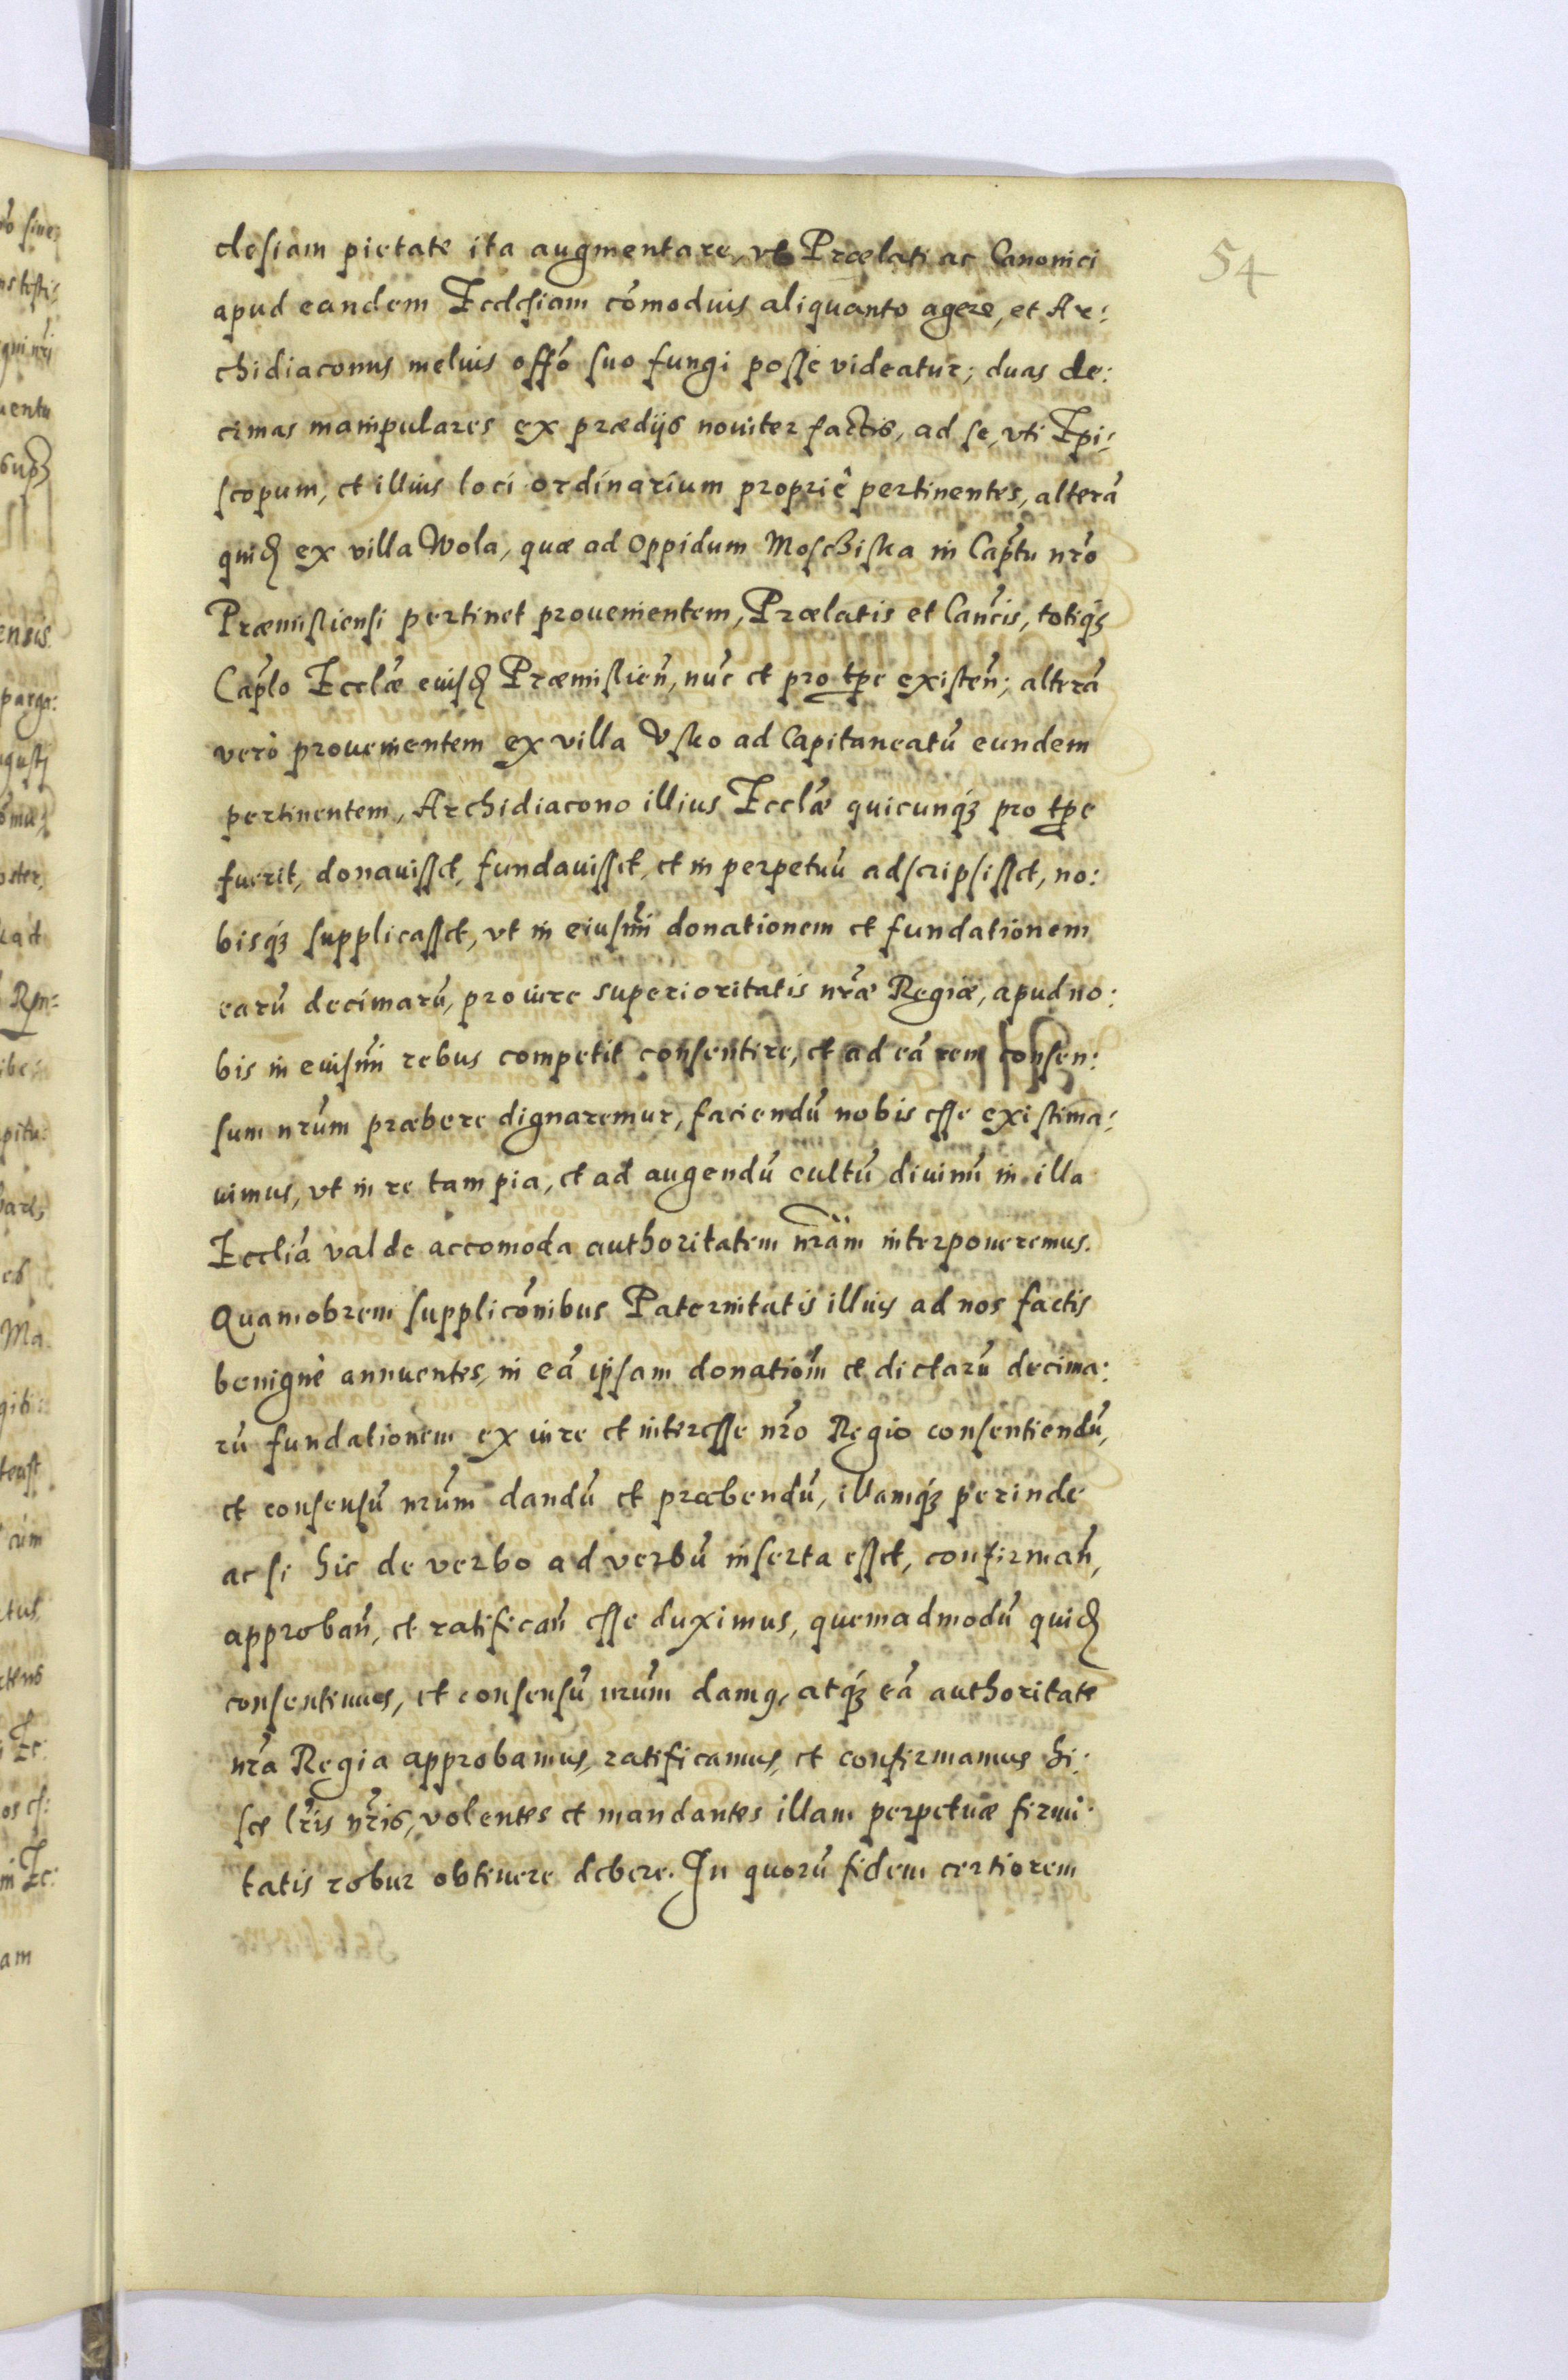 54
clesiam pietate ita augmentare, vt Prælati ac Canonici
apud eandem Ecclesiam cōmodius aliquanto agere, et Ar:
chidiaconus melius offō suo fungi posse videatur; duas de:
cimas manipulares ex prædijs noviter factis, ad se, vti Epi:
scopum, et illius loci ordinarium propriè pertinentes, alterā
quiđ ex villa Wola, quæ ad oppidum Mosciska in Captu nrō
Præmisliensi pertinet prouenientem, Prælatis et Cancis, totiq́ꝫ
Caplo Ecclæ eiusđ Præmislieñ, nūc et pro tpe existeñ; alterā
verò prouenientem ex villa Vsko ad Capitaneatū eundem
pertinentem, Archidiacono illius Ecclæ quicunq́ꝫ pro tpe
fuerit, donauisset, fundauisset, et in perpetuū adscripsisset, no:
bisq́ꝫ supplicasset, vt in eiusm̄i donationem et fundationem
earū decimarū, pro iure superioritatis nrǣ Regiæ, apud no:
bis in eiusm̄i rebus competit consentire, et ad eā rem consen:
sum nrūm præbere dignaremur, faciendū nobis esse existima:
uimus, vt in re tam pia, et ad augendū cultū diuinū in illa
Eccliā valde accomoda authoritatem nrām interponeremus.
Quamobrem supplicōnibus Paternitatis illius ad nos factis
benignè annuentes, in eā ipsam donatiōm et dictarū decima:
rū fundationem ex iure et interesse nrō Regio consentiendū,
et consensū nrūm dandū et præbendū, illamq́ꝫ perinde
ac si hic de verbo ad verbū inserta esset, confirmañ,
approbañ, et ratificañ esse duximus, quemadmodū quiđ
consentimus, et consensū nrūm damꝰ, atq́ꝫ eā authoritate
nrā Regia approbamus, ratificamus, et confirmamus hi:
sce lrīs nrīs, volentes et mandantes illam perpetuæ firmi:
tatis robur obtinere debere. In quorū fidem certiorem